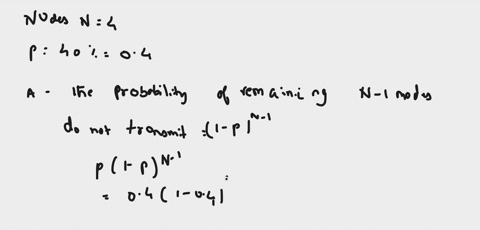 Nodes N = 4
P : 40 % = 0.4
A - The Probability of remaining N-1 nodes
do not transmit = (1-p)^N-1
p(1-p)^N-1
= 0.4 (1-0.4)